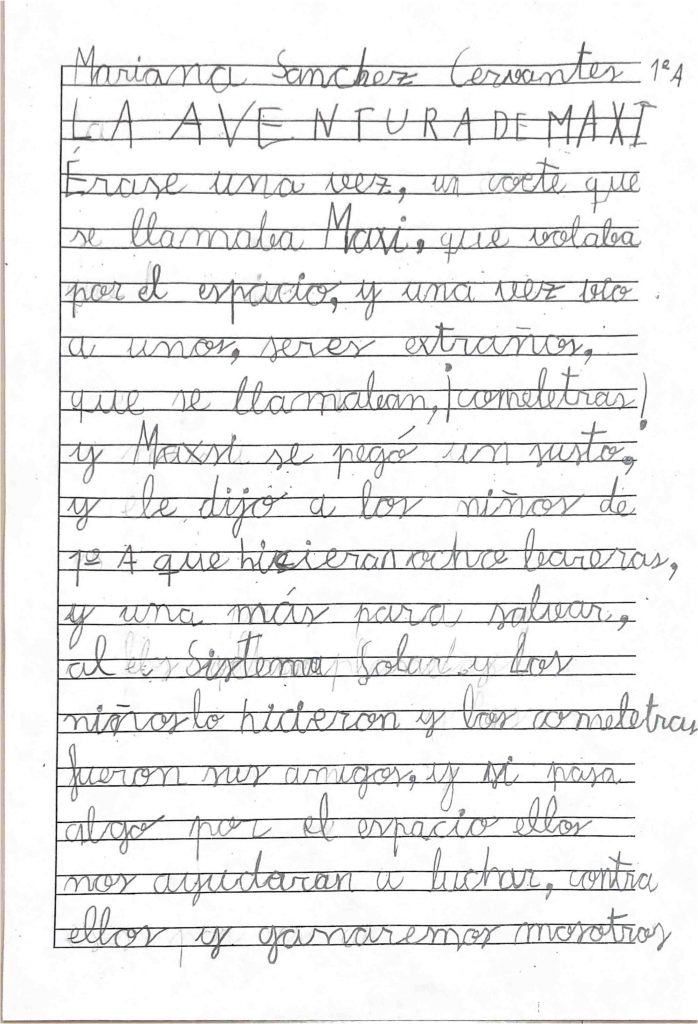 Mariana Sanchez Cervantes 1º A
LA AVENTURA DE MAXI
Érase una vez, un coete que
se llamaba Maxi, que volaba
por el espacio, y una vez vio
a unos, seres extraños,
que se llamaban, ¡comeletras!
y Maxsi se pegó un susto,
y le dijo a los niños de
1º A que hicieran ocho bareras,
y una más para salvar,
al Sistema Solar y los
niños lo hicieron y los comeletras
fueron sus amigos, y si pasa
algo por el espacio ellos
nos ayudaran a luchar, contra
ellos y ganaremos nosotros